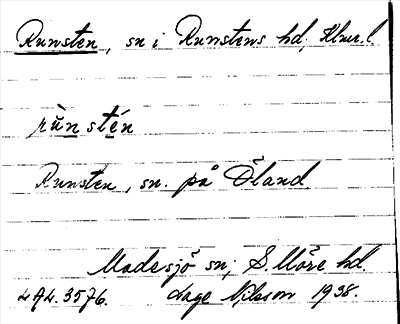 Runsten, sn i Runstens hd, Klm.l.
rùn stén
Runsten, sn. på Öland
Madesjö sn; S. Möre hd.
4A4.3576. Aage Nilsson 1938.